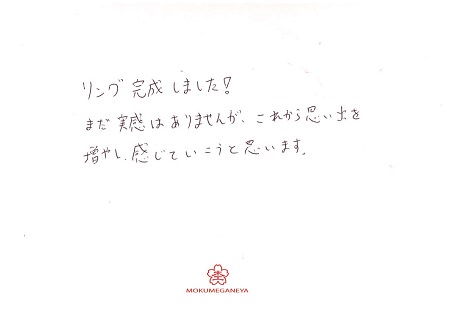 リング完成しました!
まだ実感はありませんが、これから思い出を
増やし、感じていこうと思います。
MOKUMEGANEYA